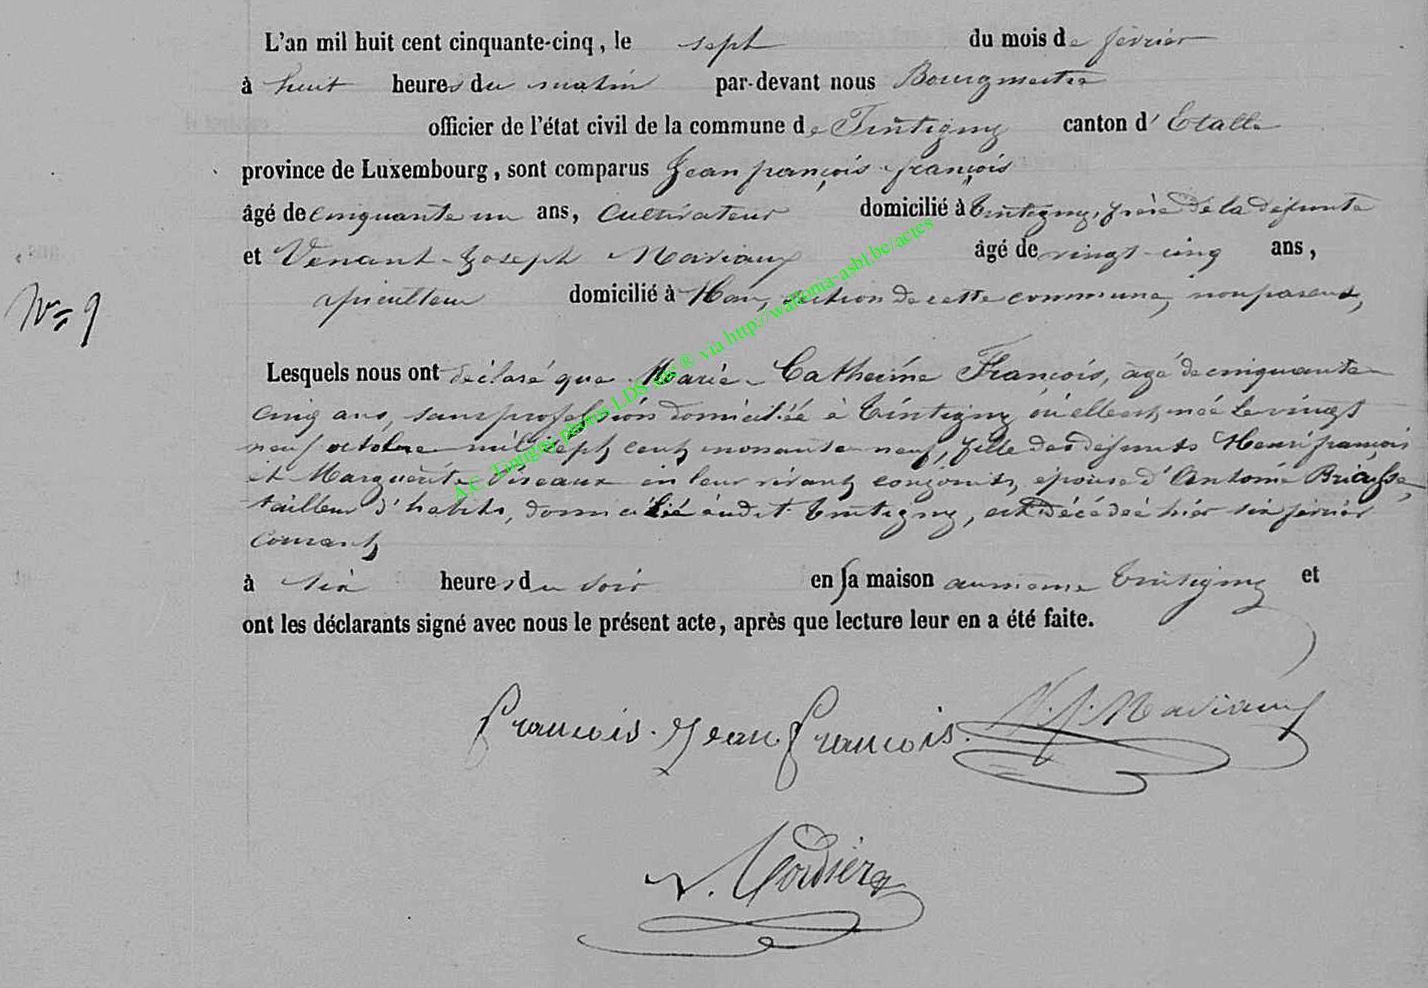 L'an mil huit cent cinquante-cinq, le sept du mois de fevrier
à huit heures du matin par-devant nous Bourgmestre
officier de l'état civil de la commune de Tintigny canton d'Etalle
province de Luxembourg, sont comparus Jean françois françois
âgé de cinquante un ans, Cultivateur domicilié à Tintigny, frère de la défunte
et Venant-Joseph Mariaux âgé de vingt-cinq ans,
N° 9
apiculteur domicilié à Han, section de cette commune, non parent,
Lesquels nous ont déclaré que Marie-Catherine François, agé de cinquante
cinq ans, sans profession domiciliée à Tintigny où elle est née le vingt
neuf octobre mil sept cent nonante neuf, fille des défunts Henri françois
et Marguerite en leur vivant conjoints, épouse d'Antoine
tailleur d'habits, domicilié audit Tintigny, est décédée hier six février
courant
à six heures du soir en sa maison au même Tintigny et
ont les déclarants signé avec nous le présent acte, après que lecture leur en a été faite.
A.C. Tintigny photos LDS via http://wallonia-asbl.be/actes
francois. Jean francois. V.J. Mariaux
Cordier